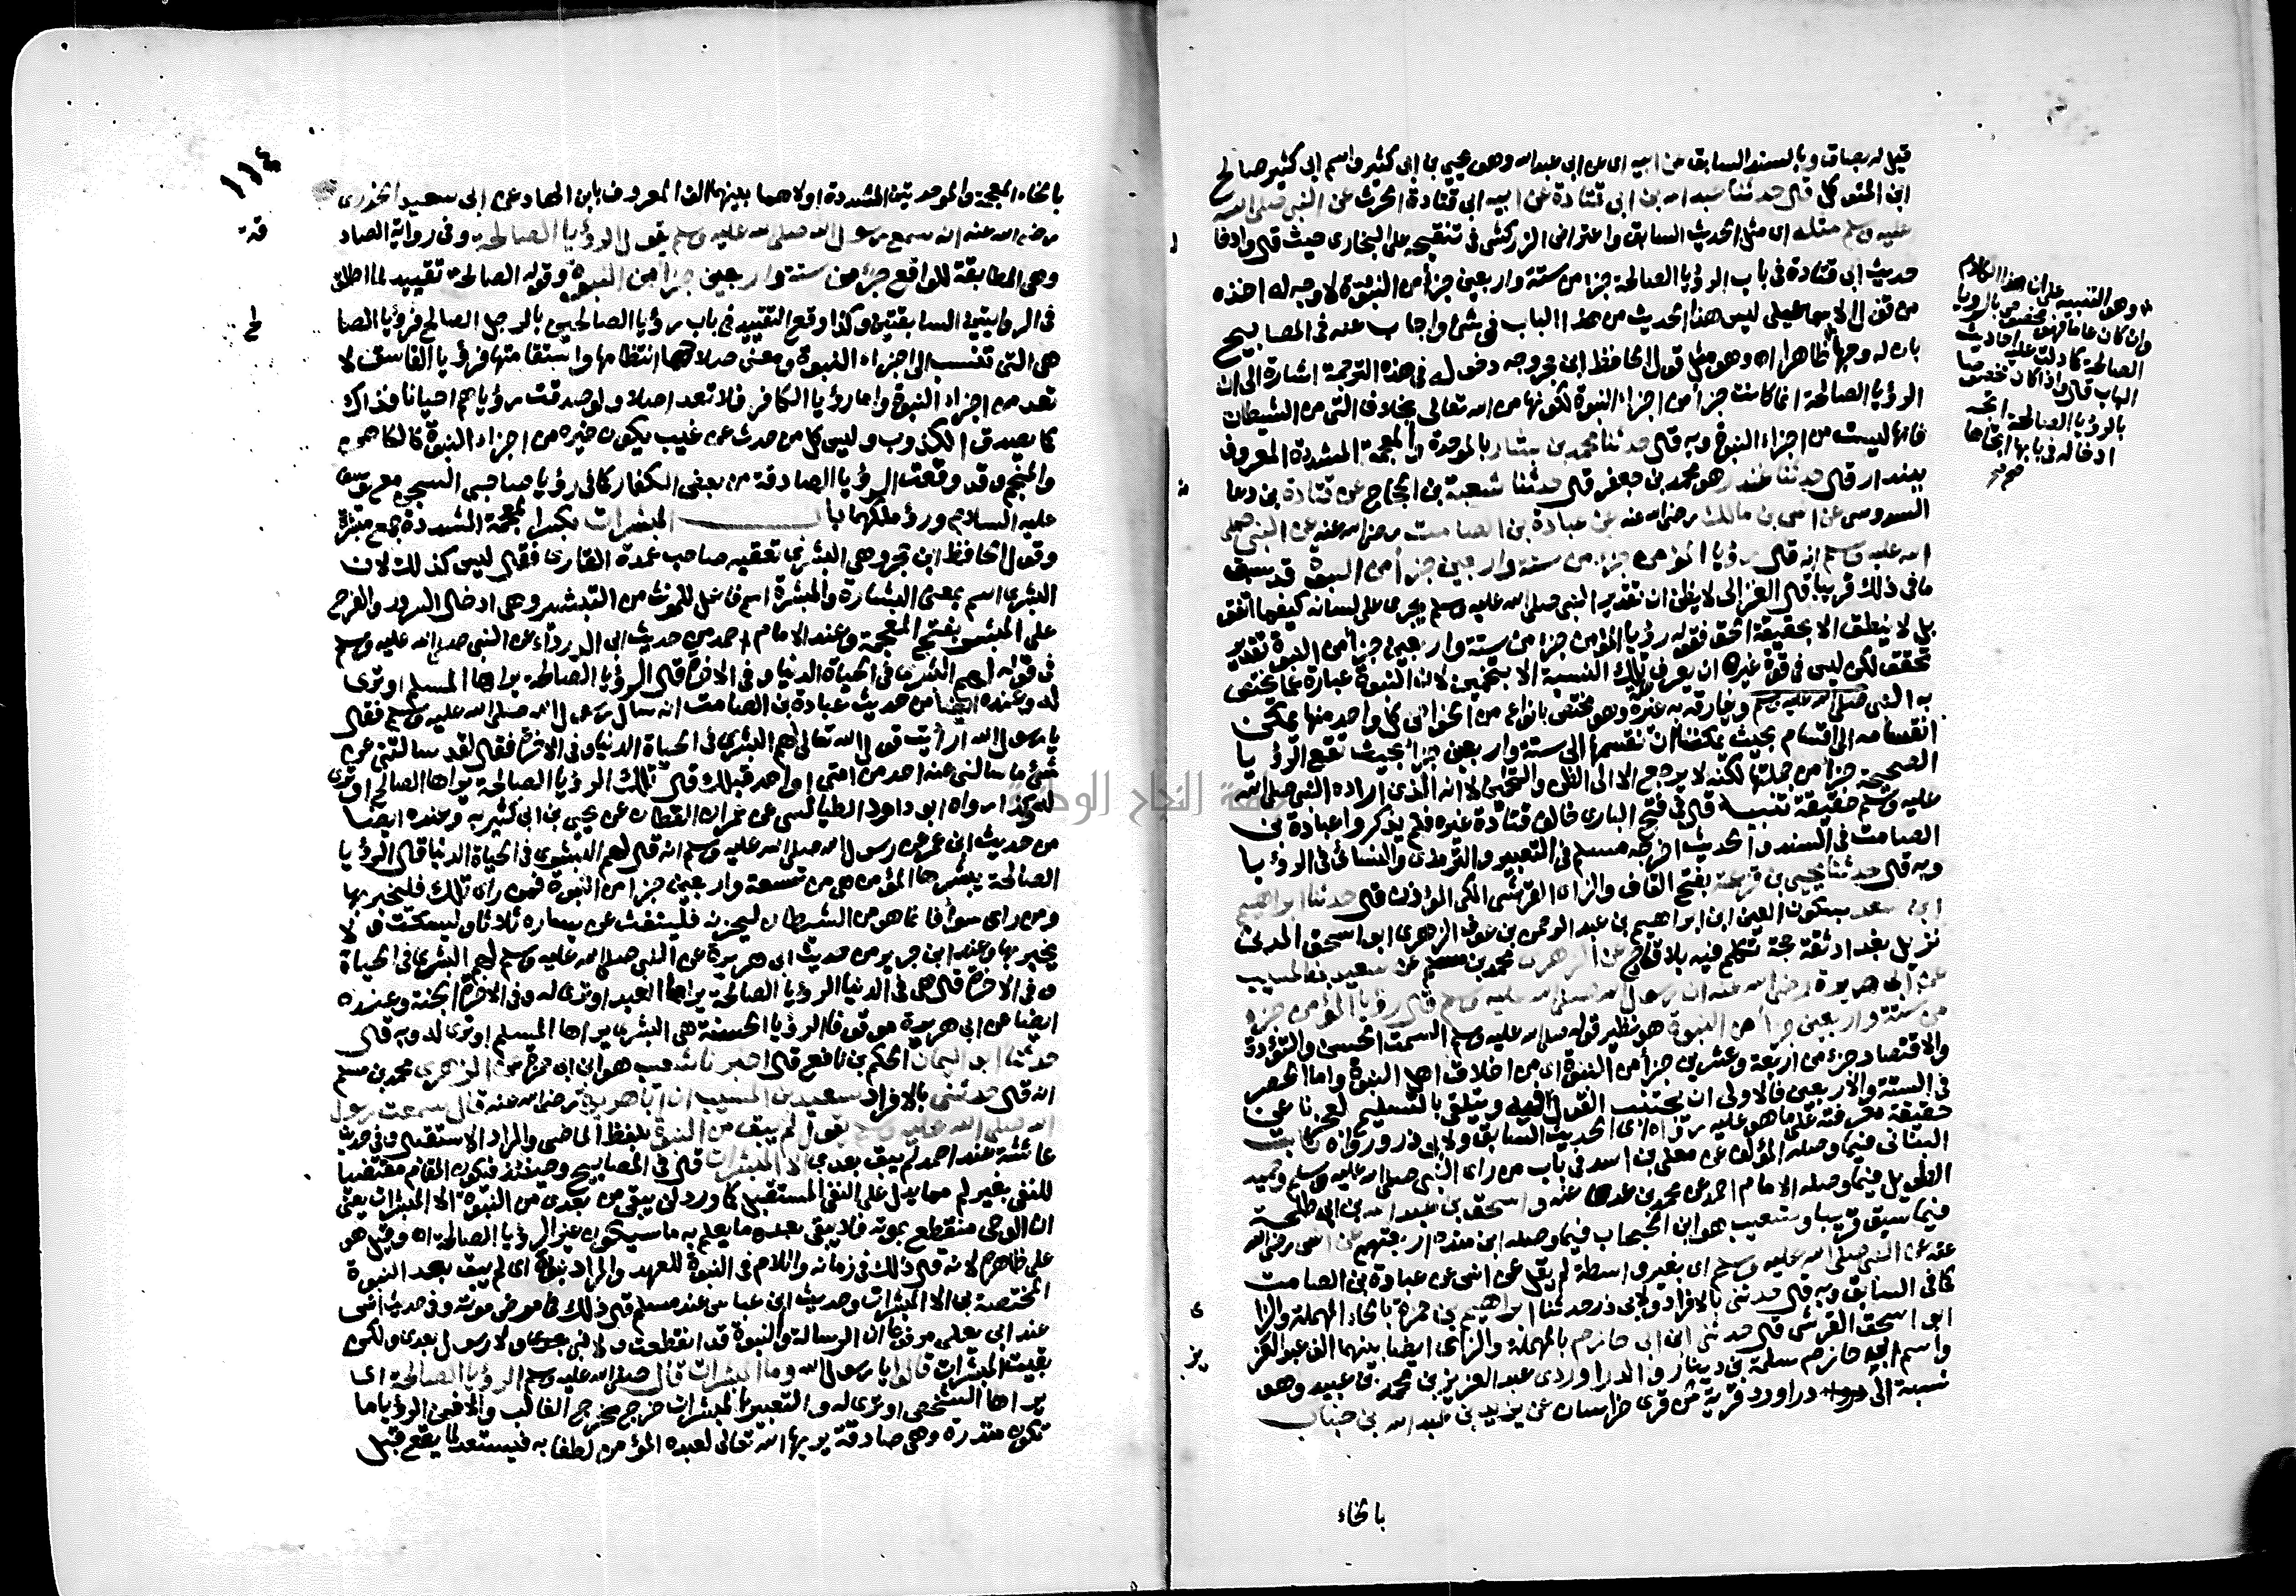 قيل له بصاق وبالسند السابق من ابيه اى عن ابى عبدالله وهو يحيى بن ابى كثير واسم ابى كثير صالح
ابن المتوكل قال حدثنا عبدالله بن ابى قتادة عن ابيه ابى قتادة الحرث عن النبى صلى الله
عليه وسلم مثله اى مثل الحديث السابق واعترض الزركشى فى تنقيحه على البخارى حيث قال وادخا
حديث ابى قتادة فى باب الرؤيا الصالحة جزء من ستة واربعين جزأ من النبوة لا وجه له اخذه
من قول الاسماعيلى ليس هذا الحديث من هذا الباب فى شئ واجاب عنه فى المصابيح
بان له وجها ظاهرا اه وهو مثل قول الحافظ ابن حجر وجه دخوله فى هذه الترجمة اشارة الى ان
الرؤيا الصالحة انما كانت جزأ من اجزاء النبوة لكونها من الله تعالى بخلاف التى من الشيطان
فانها ليست من اجزاء النبوة وبه قال حدثنا محمد بن بشار بالموحدة والمعجمة المشددة المعروف
ببندار قال حدثنا غندر هو محمد بن جعفر قال حدثنا شعبة بن الحجاج عن قتادة بن دعا
السدوسى عن انس بن مالك رضى الله عنه عن عبادة بن الصامت رضى الله عنه عن النبى صلى
الله عليه وسلم انه قال رؤيا المؤمن جزء من ستة واربعين جزأ من النبوة قد سبق
ما فى ذلك قريبا قال الغزالى لا يظن ان تقدير النبى صلى الله عليه وسلم يجرى على لسانه كيفما اتفق
بل لا ينطق الا بحقيقة الحق فقوله رؤيا المؤمن جزء من ستة واربعين جزأ من النبوة تقدير
تحقق لكن ليس فى قوة غيره ان يعرف تلك النسبة الا بتخمين لان النبوة عبارة عما يختص
به النبى صلى الله عليه وسلم ويفارق به غيره وهو مختص بانواع من الخواص كل واحد منها يمكن
انقسامه الى اقسام بحيث يمكننا ان نقسمها الى ستة واربعين جزأ بحيث تقع الرؤيا
الصحيحة جزأ من جملتها لكنه لا يرجع الا الى الظن والتخمين لا انه الذى اراده النبى صلى الله
عليه وسلم حقيقة تنبيه قال فى فتح البارى خالف قتادة غيره فلم يذكروا عبادة بن
الصامت فى السند والحديث اخرجه مسلم فى التعبير والترمذى والنسائى فى الرؤيا
وبه قال حدثنا يحيى بن قزعة بفتح القاف والزاى القرشى المكى المؤذن قال حدثنا ابراهيم
ابن سعد بسكون العين ابن ابراهيم بن عبد الرحمن بن عوف الزهرى ابو اسحق المدنى
نزيل بغداد ثقة حجة تكلم فيه بلا قادح عن الزهرى محمد بن مسلم عن سعيد بن المسيب
عن ابى هريرة رضى الله عنه ان رسول الله صلى الله عليه وسلم قال رؤيا المؤمن جزء
من ستة واربعين جزأ من النبوة هو نظير قوله صلى الله عليه وسلم السمت الحسن والتؤدة
والاقتصاد جزء من اربعة وعشرين جزأ من النبوة اى من اخلاق اهل النبوة واما الحصر
فى الستة والاربعين فالاولى ان يجتنب القول فيه ويتلقى بالتسليم لعجزنا عن
حقيقة معرفته على ما هو عليه رواه اى الحديث السابق ولابى ذر ورواه ثابت
البنانى فيما وصله المؤلف عن معلى بن اسد فى باب من راى النبى صلى الله عليه وسلم وحميد
الطويل فيما وصله الامام احمد عن محمد بن عدى عنه واسحق بن عبد الله بن ابى طلحة
فيما سبق قريبا وشعيب هو ابن الحبحاب فيما وصله ابن منده اربعتهم عن انس رضى الله
عنه عن النبى صلى الله عليه وسلم اى بغير واسطة لم يقل عن انس عن عبادة بن الصامت
كما فى السابق وبه قال حدثنى بالافراد ولابى ذر حدثنا ابراهيم بن حمزة بالحاء المهملة والزا
ابو اسحق القرشى قال حدثنى ابن ابى حازم بالمهملة والزاى ايضا بينهما الف عبد العز
واسم ابى حازم سلمة بن دينار والدراوردى عبد العزيز بن محمد بن عبيد وهو
نسبة الى دراورد قرية من قرى خراسان عن يزيد بن عبد الله بن خباب
بالخاء
وهو التنبيه على ان هذا الكلام
وان كان عاما فهو مخصوص بالرويا
الصالحة كما دلت عليه احاديث
الباب قال واذا كان مخصوصا
بالرؤيا الصالحة اتجه
ادخاله فى بابها اتجاها
١١٤
بالخاء المعجمة والموحدتين المشددة اولاهما بينهما الف المعروف بابن الهاد عن ابى سعيد الخدرى
رضى الله عنه انه سمع رسول الله صلى الله عليه وسلم يقول الرؤيا الصالحة وفى رواية الصاد
قة
وهى المطابقة للواقع جزء من ستة واربعين جزأ من النبوة وقوله الصالحة تقييد لما اطلق
فى الروايتين السابقتين وكذا وقع التقييد فى باب رؤيا الصالحين بالرجل الصالح فرؤيا الصا
لح
هى التى تنسب الى اجزاء النبوة ومعنى صلاحها انتظامها واستقامتها فرؤيا الفاسق لا
تعد من اجزاء النبوة واما رؤيا الكافر فلا تعد اصلا ولو صدقت رؤياهم احيانا فذاك
كما يصدق الكذوب وليس كل من حدث عن غيب يكون خبره من اجزاء النبوة كالكاهن
والمنجم وقد وقعت الرؤيا الصادقة من بعض الكفار كما فى رؤيا صاحبى السجن مع يوسف
عليه السلام ورؤيا ملكهما باب المبشرات بكسر المعجمة المشددة جمع مبشرة
وقول الحافظ ابن حجر وهى البشرى تعقبه صاحب عمدة القارى فقال ليس كذلك لان
البشرى اسم بمعنى البشارة والمبشرة اسم فاعل للمؤنث من التبشير وهى ادخال السرور والفرح
على المبشر بفتح المعجمة وعند الامام احمد من حديث ابى الدرداء عن النبى صلى الله عليه وسلم
فى قوله لهم البشرى فى الحياة الدنيا وفى الاخرة قال الرؤيا الصالحة يراها المسلم او ترى
له وعنده ايضا من حديث عبادة بن الصامت انه سال رسول الله صلى الله عليه وسلم فقال
يا رسول الله ارأيت قول الله تعالى لهم البشرى فى الحياة الدنيا وفى الاخرة فقال لقد سالتنى عن
شئ ما سالنى عنه احد من امتى او احد قبلك قال تلك الرؤيا الصالحة يراها الصالح او ترى
له وكذا رواه ابو داود الطيالسى عن عمران القطان عن يحيى بن ابى كثير به وعنده ايضا
من حديث ابن عمر عن رسول الله صلى الله عليه وسلم انه قال لهم البشرى فى الحياة الدنيا قال الرؤيا
الصالحة يبشرها المؤمن هى من تسعة واربعين جزأ من النبوة فمن راى تلك فليخبر بها
ومن راى سوأ فانما هو من الشيطان ليحزنه فلينفث عن يساره ثلاثا وليسكت ولا
يخبر بها وعند ابن جرير من حديث ابى هريرة عن النبى صلى الله عليه وسلم لهم البشرى فى الحياة
وفى الاخرة قال هى فى الدنيا الرؤيا الصالحة يراها العبد او ترى له وفى الاخرة الجنة وعنده
ايضا عن ابى هريرة موقوفا الرؤيا الحسنة هى البشرى يراها المسلم او ترى له وبه قال
حدثنا ابو اليمان الحكم بن نافع قال اخبرنا شعيب هو ابن ابى حمزة عن الزهرى محمد بن مسلم
انه قال حدثنى بالافراد سعيد بن المسيب ان ابا هريرة رضى الله عنه قال سمعت رسول
الله صلى الله عليه وسلم يقول لم يبق من النبوة بلفظ الماضى والمراد الاستقبال وفى حديث
عائشة عند احمد لم يبق بعدى الا المبشرات قال فى المصابيح وحينئذ فيكون المقام مقتضيا
للنفى بغير لم مما يدل على النفى المستقبل كما ورد لن يبقى من بعدى من النبوة الا المبشرات يعنى
ان الوحى منقطع بموته فلا يبقى بعده ما يعلم به ما سيكون غير الرؤيا الصالحة اه وقيل هو
على ظاهره لانه قال ذلك فى زمانه واللام فى النبوة للعهد والمراد نبوته اى لم يبق بعد النبوة
المختصة بى الا المبشرات وحديث ابن عباس عند مسلم قال ذلك فى مرض موته وفى حديث انس
عند ابى يعلى مرفوعا ان الرسالة والنبوة قد انقطعت ولا نبى بعدى ولا رسول بعدى ولكن
بقيت المبشرات قالوا يا رسول الله وما المبشرات قال صلى الله عليه وسلم الرؤيا الصالحة اى
يراها الشخص او ترى له والتعبير بالمبشرات خرج مخرج الغالب والا فمن الرؤيا ما
تكون منذرة وهى صادقة يريها الله تعالى لعبده المؤمن لطفا به فيستعد لما يقع قبل